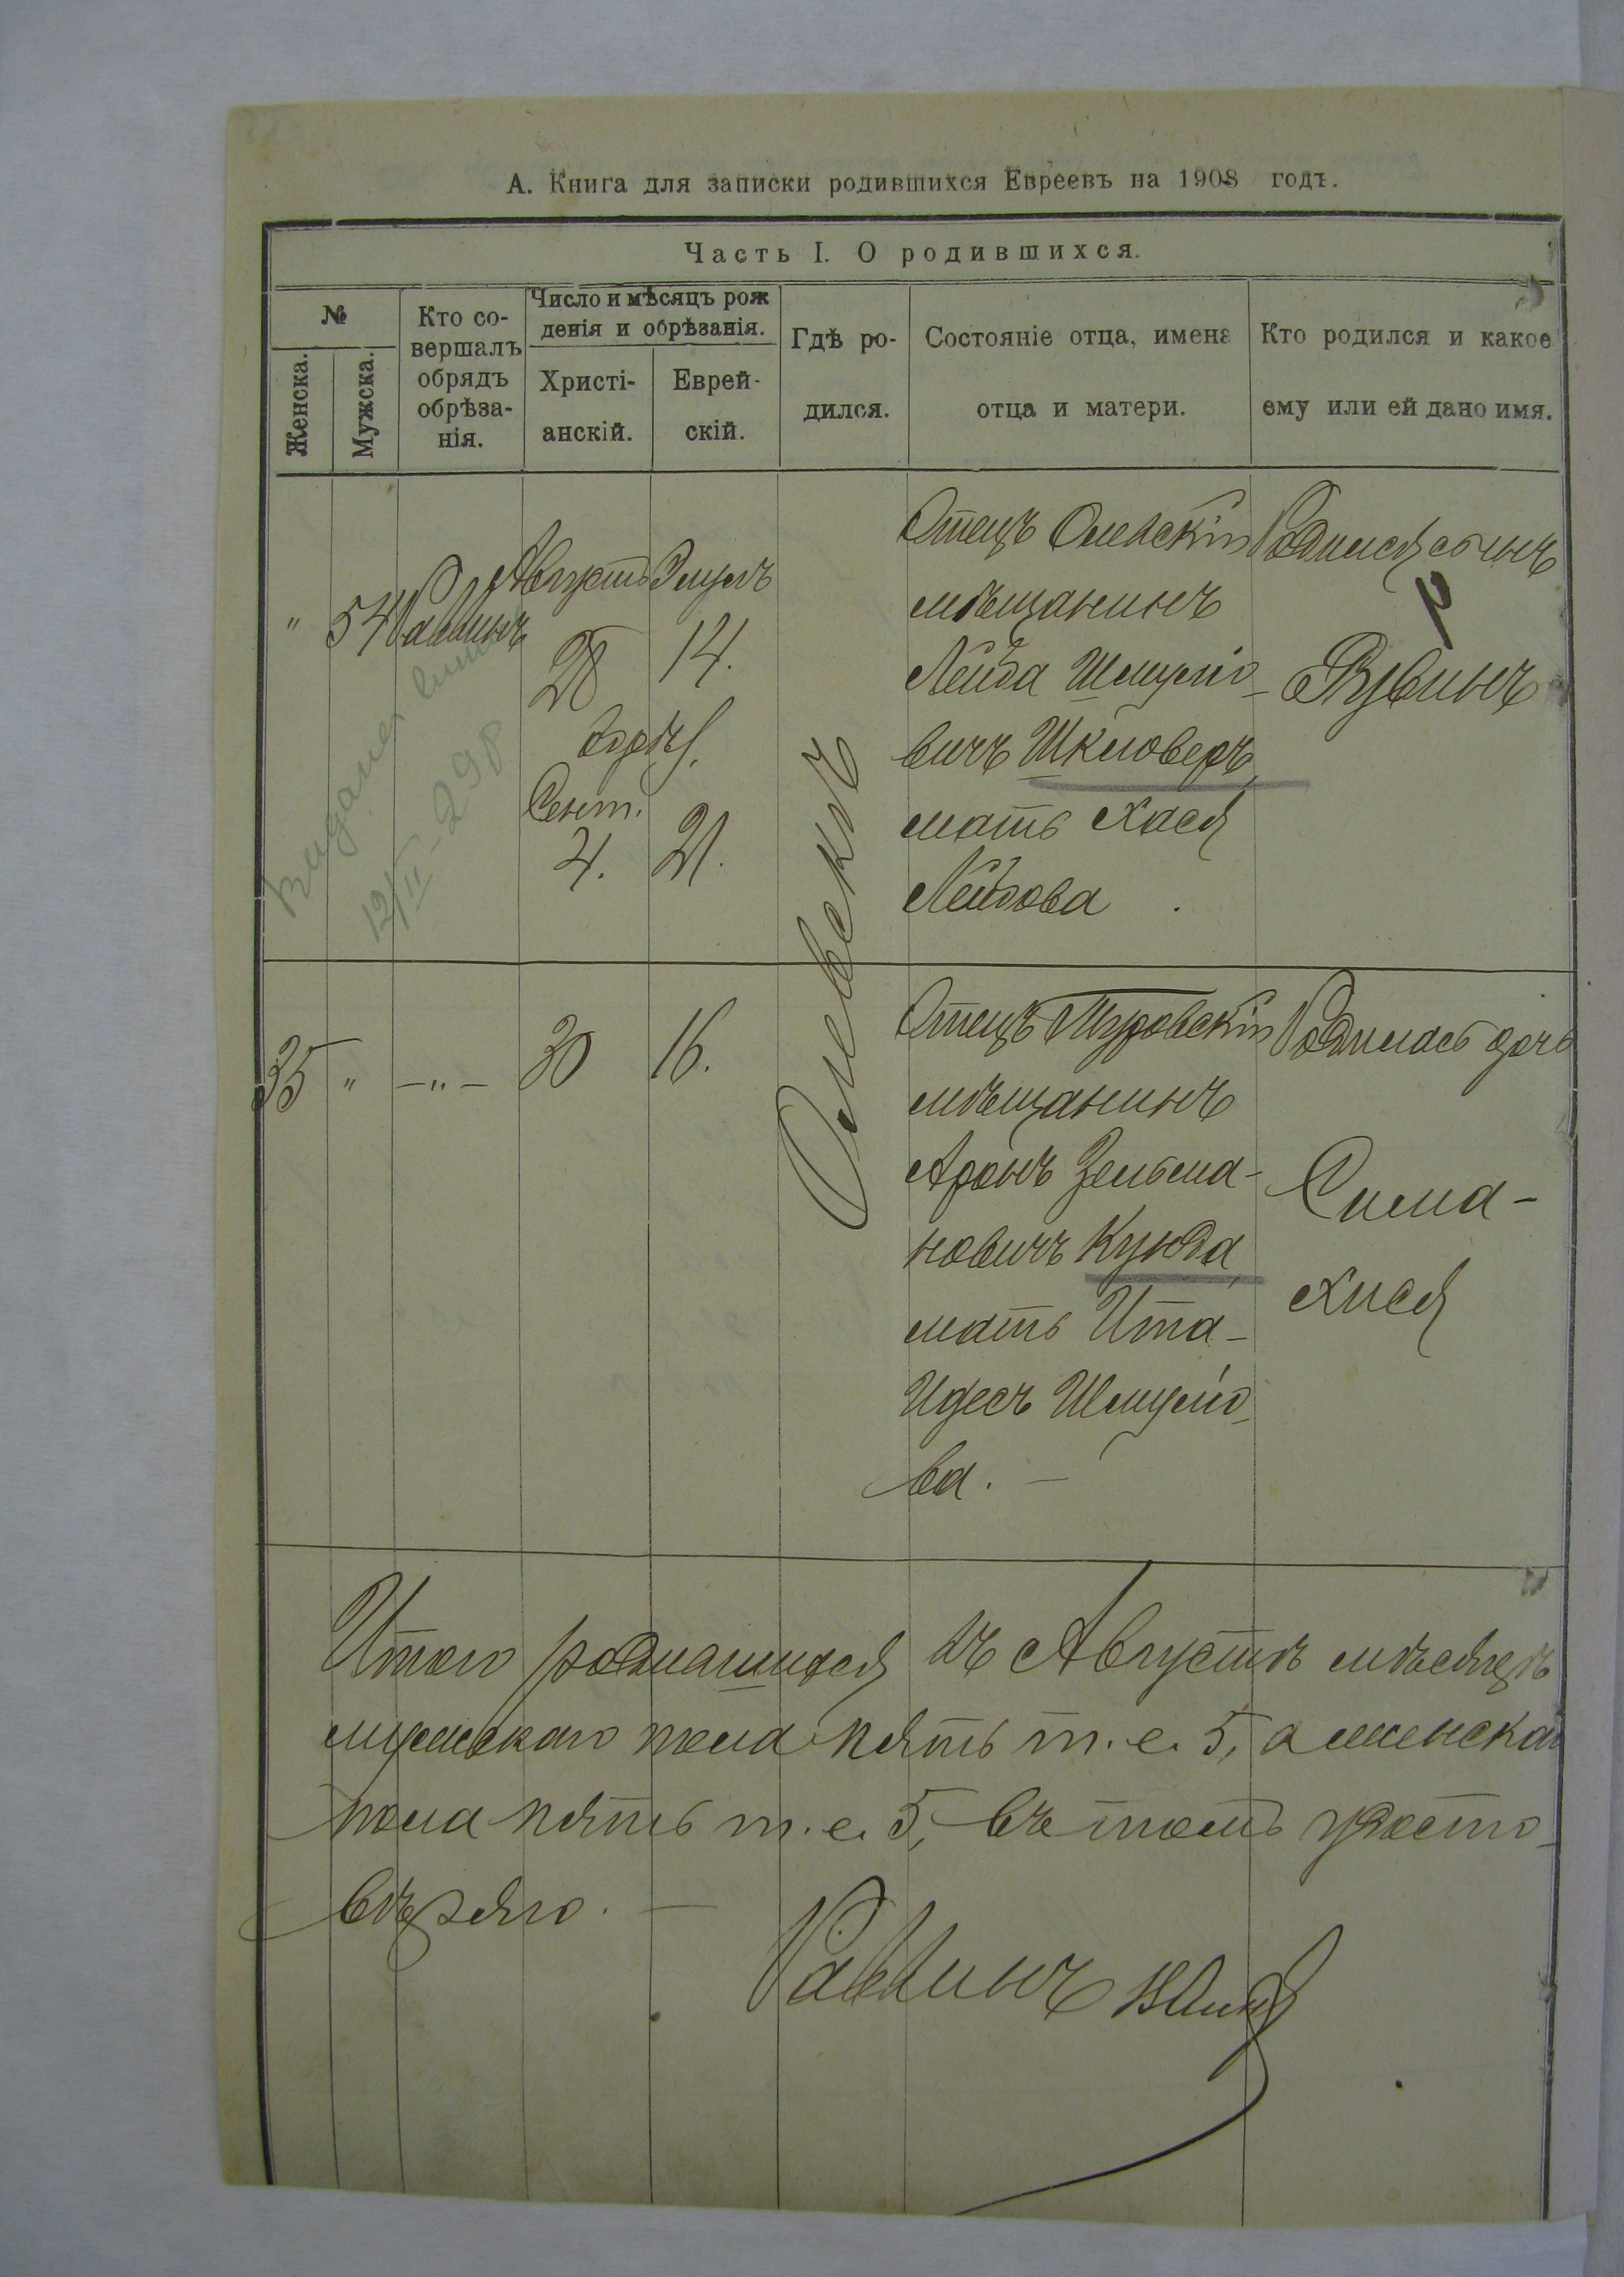 А. Книга для записки родившихся Евреевъ на 1908 годъ.
Часть I. О родившихся.
№
Женска.
Мужска.
Кто со-
вершалъ
обрядъ
обрѣза-
нія.
Число и мѣсяцъ рож
денія и обрѣзанія.
Христі-
анскій.
Еврей-
скій.
Гдѣ ро-
дился.
Состояніе отца, имена
отца и матери.
Кто родился и какое
ему или ей дано имя.
" 54 Раввинъ
Августъ Элулъ
28 14.
обрѣз.
Сент.
4. 21.
Олевскъ
Отецъ Олевскій
мѣщанинъ
Лейба Шмуліо-
вичъ Шкловеръ,
мать Хася
Лейбова .
Родился сынъ
Рувинъ
12/II - 298
35 " - " - 30 16.
Отецъ Туровскій
мѣщанинъ
Аронъ Зельма-
новичъ Кунда,
мать Ита-
Идесъ Шмуліо-
ва. -
Родилась дочь
Сима-
Хися
Итого родившихся въ Августѣ мѣсяцѣ
мужскаго пола пять т. е. 5, а женскаго
пола пять т. е. 5, въ томъ удосто-
вѣряю. -
Раввинъ